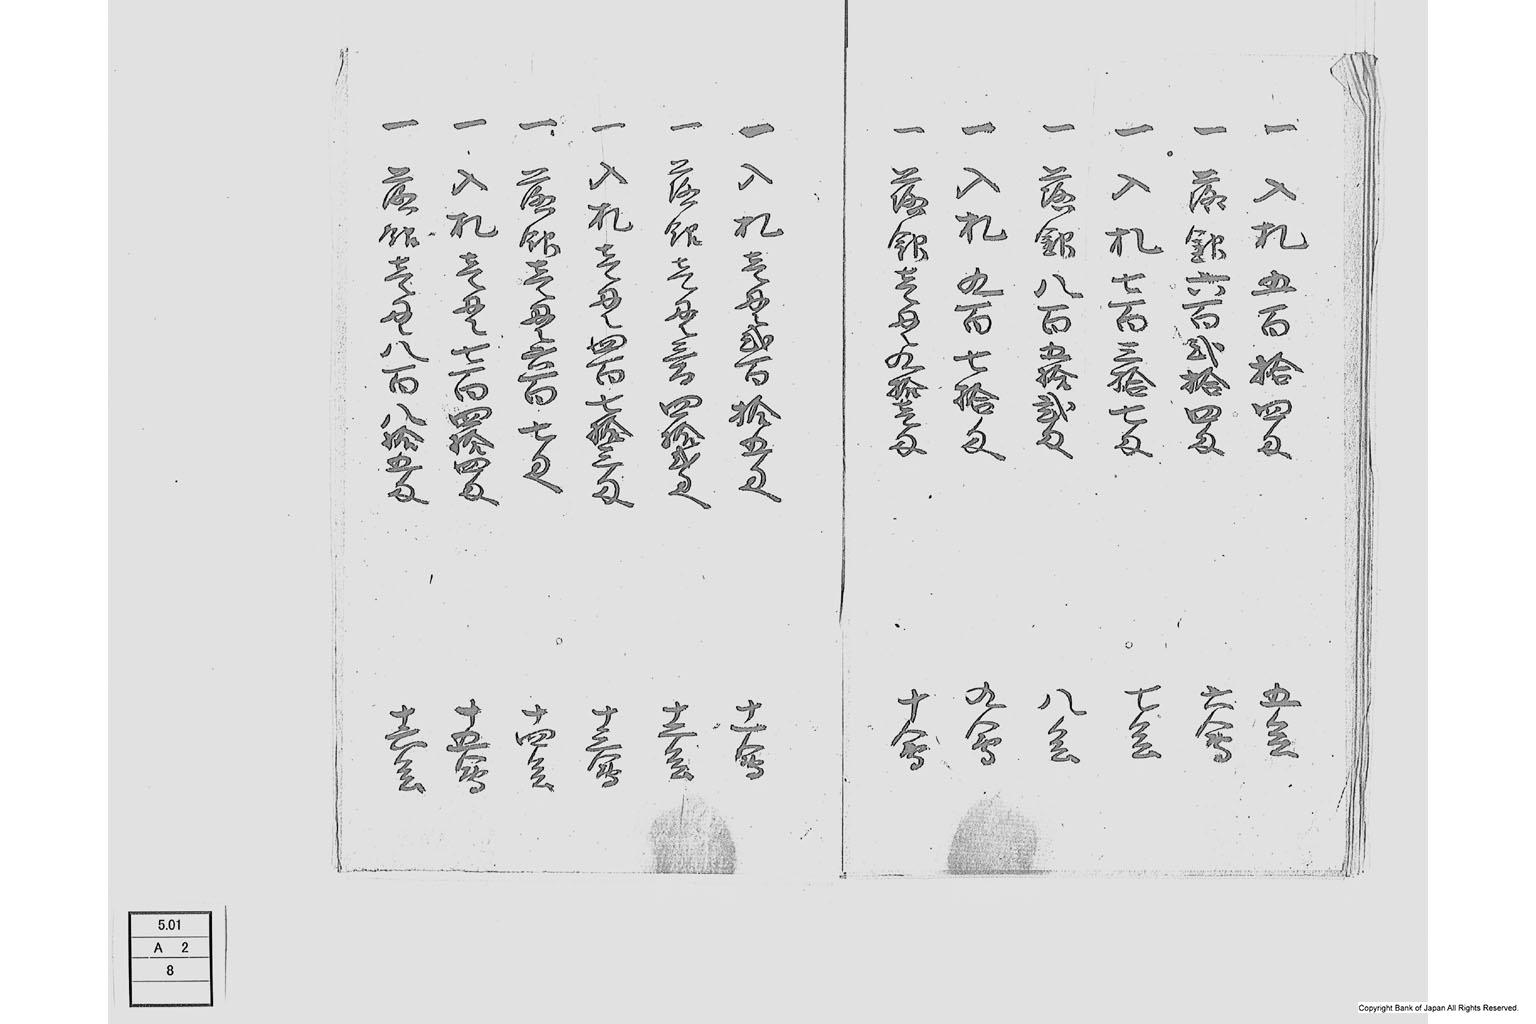 一 入札五百拾四匁 五会
一 落銀六百弐拾四匁 六會
一 入札七百三拾七匁 七会
一 落銀八百五拾弐匁 八会
一 入札九百七拾匁 九會
一 落銀壱貫九拾壱匁 十會
一 入札壱貫弐百拾五匁 十一會
一 落銀壱貫三百四拾弐匁 十二会
一 入札壱貫四百七拾三匁 十三會
一 落銀壱貫六百七匁 十四会
一 入札壱貫七百四拾四匁 十五會
一 落銀壱貫八百八拾五匁 十六会
5.01
A 2
8
Copyright Bank of Japan All Rights Reserved.